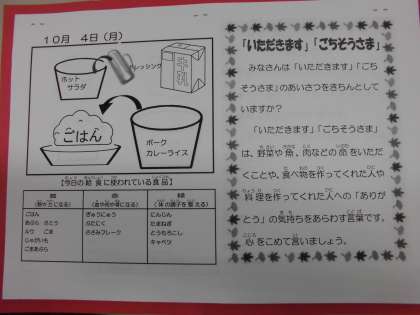 10月　4日（月）
ドレッシング
ホット
サラダ
ごはん
ポーク
カレーライス
【今日の給食に使われている食品】
黄　赤　緑
（熱や力になる）　（血や肉や骨になる）　（体の調子を整える）
ごはん　ぎゅうにゅう　にんじん
あぶら　さとう　ぶたにく　たまねぎ
ルウ　ごま　ささみフレーク　とうもろこし
じゃがいも　キャベツ
ごまあぶら
「いただきます」「ごちそうさま」
みなさんは「いただきます」「ごち
そうさま」のあいさつをきちんとして
いますか？
「いただきます」「ごちそうさま」
は、野菜や魚、肉などの命をいただ
くことや、食べ物を作ってくれた人や
料理を作ってくれた人への「ありが
とう」の気持ちをあらわす言葉です。
心をこめて言いましょう。